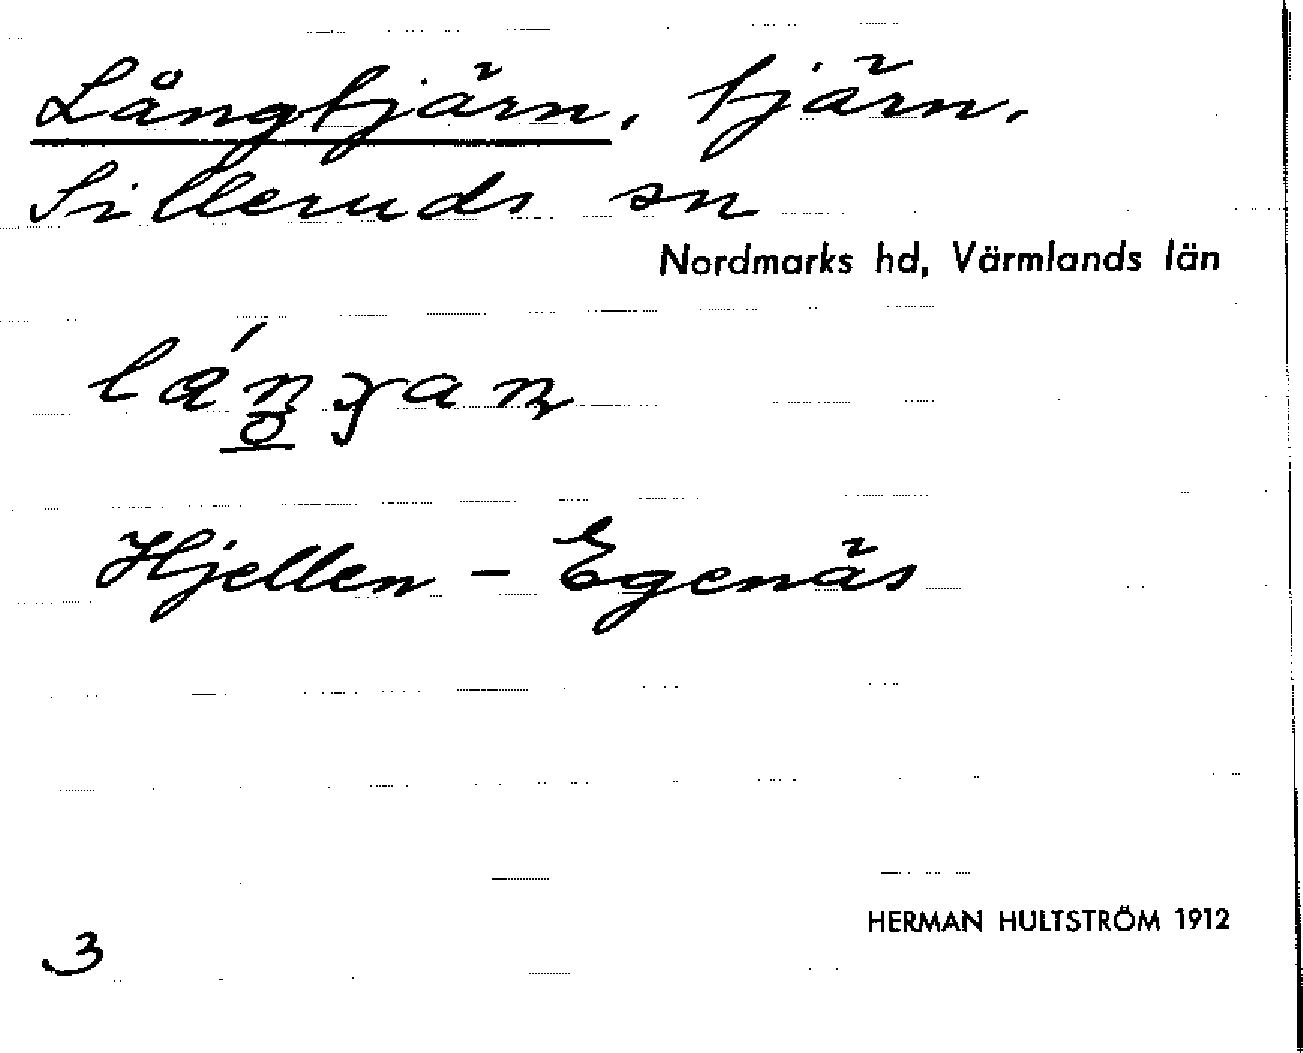 Långtjärn, tjärn.
Silleruds sn
Nordmarks hd, Värmlands län
Hjellen - Egenäs
HERMAN HULTSTRÖM 1912
3